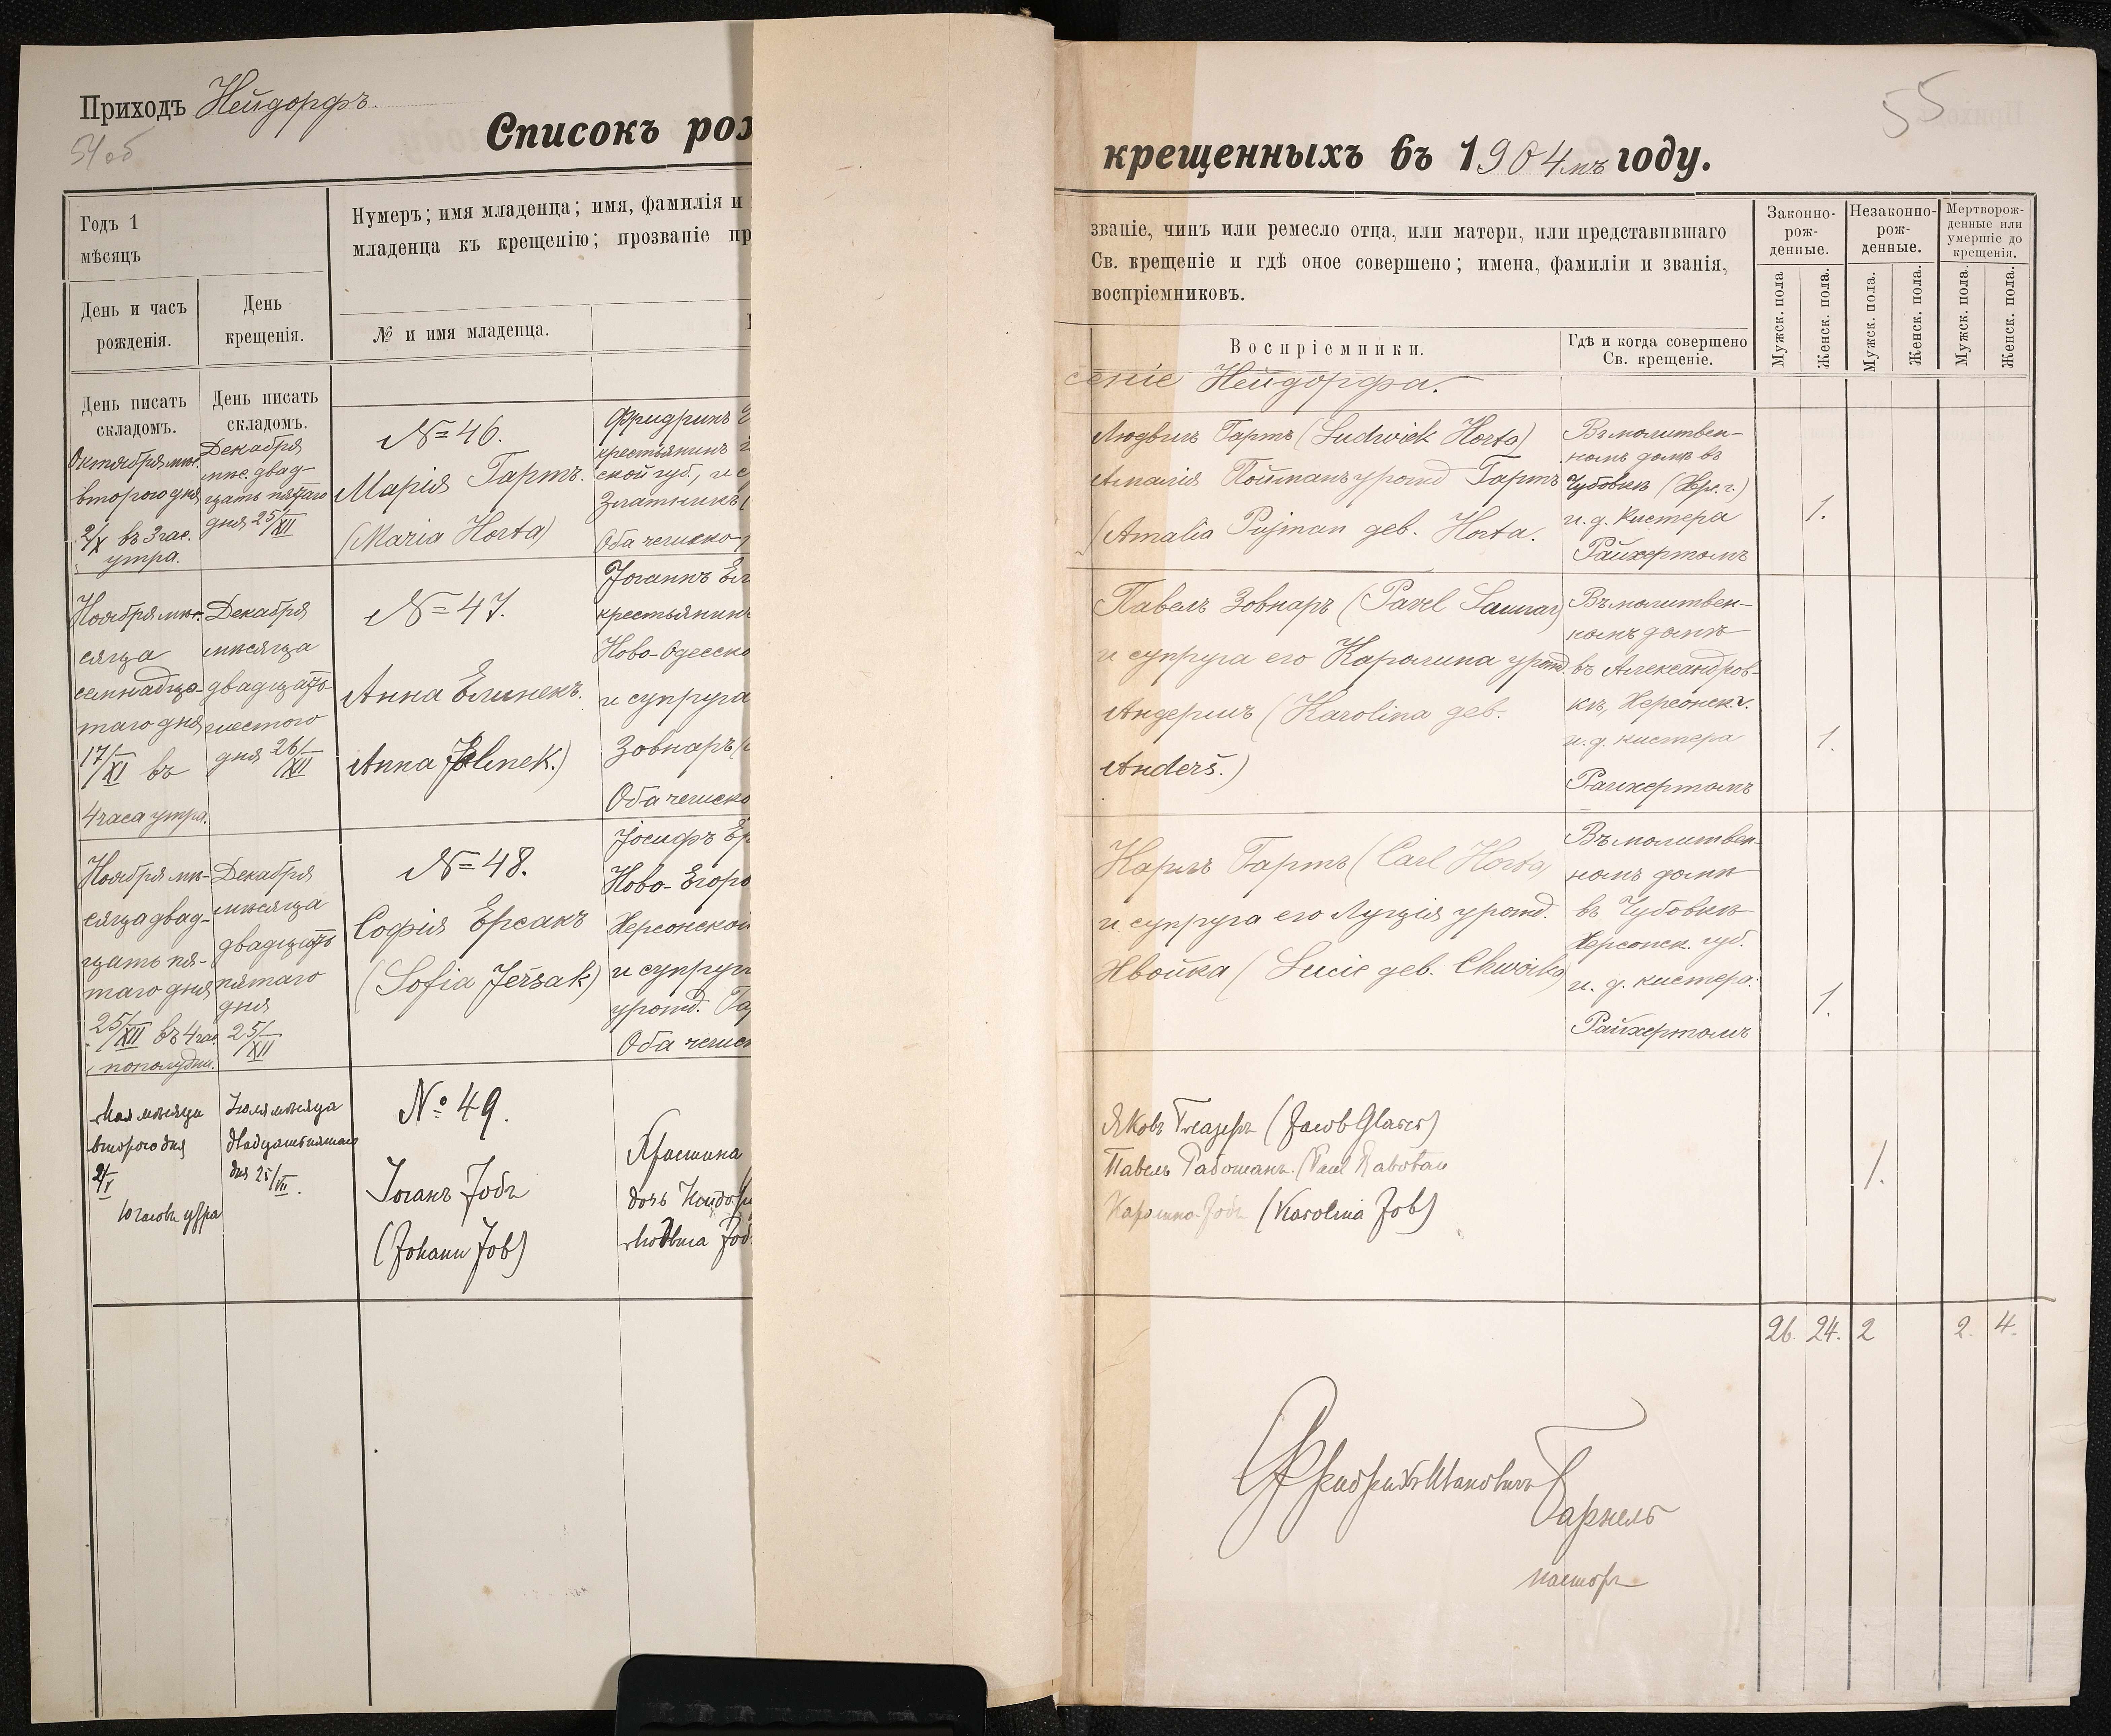 Приходъ Нейдорфъ.
54 об
Списокъ рож
Годъ 1
мѣсяцъ
Нумеръ; имя младенца; имя, фамилія и
младенца къ крещенію; прозваніе пр
День и часъ
рожденія.
День
крещенія.
№ и имя младенца.
День писать
складомъ.
День писать
складомъ.
Октября мѣс.
второго дня
2/X въ 3 час.
утра.
Декабря
мѣс. двад-
цать пятаго
дня 25/XII
№ 46.
Марія Гартъ.
(Maria Horta)
Фридрихъ
крестьянинъ
ской губ., и с
Златникъ (
Оба чешско-
Ноября мѣ-
сяца
семнадца-
таго дня
17/XI въ
4 часа утра.
Декабря
мѣсяца
двадцать
шестого
дня 26/XII
№ 47.
Анна Елинекъ.
Anna Jelinek.)
Іоганнъ Ел
крестьянинъ
Ново-Одесско
и супруга
Зовнаръ (
Оба чешско
Ноября мѣ-
сяца двад-
цать пя-
таго дня
25/XII въ 4 час.
пополудни.
Декабря
мѣсяца
двадцать
пятаго
дня
25/XII
№ 48.
Софія Ерсакъ
(Sofia Jeřsak)
Іосифъ Ер
Ново-Егоро
Херсонской
и супруг
урожд. Га
Оба чешск
Мая мѣсяца
второго дня
2/V
10 часовъ утра
Іюля мѣсяца
двадцать пятаго
дня 25/VII.
№ 49.
Іоганъ Іобъ
(Johann Job)
Христина
дочь Нейдорф
Людвига Іоб
55
крещенныхъ въ 1904мъ году.
званіе, чинъ или ремесло отца, или матери, или представившаго
Св. крещеніе и гдѣ оное совершено; имена, фамиліи и званія,
воспріемниковъ.
Воспріемники.
Гдѣ и когда совершено
Св. крещеніе.
Законно-
рож-
денные.
Незаконно-
рож-
денные.
Мертворож-
денные или
умершіе до
крещенія.
Мужск. пола
Женск. пола.
Мужск. пола.
Женск. пола.
Мужск. пола.
Женск. пола.
сеніе Нейдорфа.
Людвигъ Гартъ (Ludwick Horta)
Амалія Пойманъ урожд Гартъ
(Amalia Pujman geb. Horta.
Въ молитвен-
номъ домѣ въ
Чубовкѣ (Хер. г.)
и. д. кистера
Райхертомъ
1.
Павелъ Зовнаръ (Pavel Saunar)
и супруга его Каролина урожд.
Андершъ (Karolina geb.
Anderš.)
Въ молитвен-
номъ домѣ
въ Александров-
кѣ, Херсонск. г.
и. д. кистера
Райхертомъ
1.
Карлъ Гартъ (Carl Horta)
и супруга его Луція урожд.
Хвойка (Lucie geb. Chwoika)
Въ молитвен-
номъ домѣ
въ Чубовкѣ
Херсонск. губ.
и. д. кистера.
Райхертомъ
1.
Яковъ Глазеръ (Jacob Glaser)
Павелъ Работанъ. (Paul Rabotan
Каролина Іобъ (Karolina Job)
1.
26. 24. 2 2. 4.
Фридрихъ Ивановичъ
пасторъ